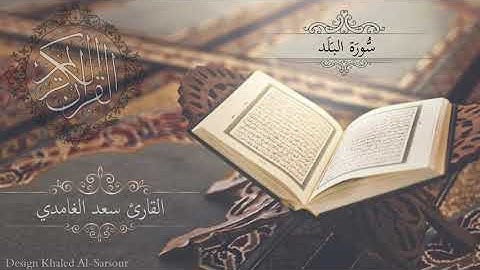 سُّورَة البَلَد
القرآن الكريم
القارئ سعد الغامدي
Design Khaled Al-Sarsour